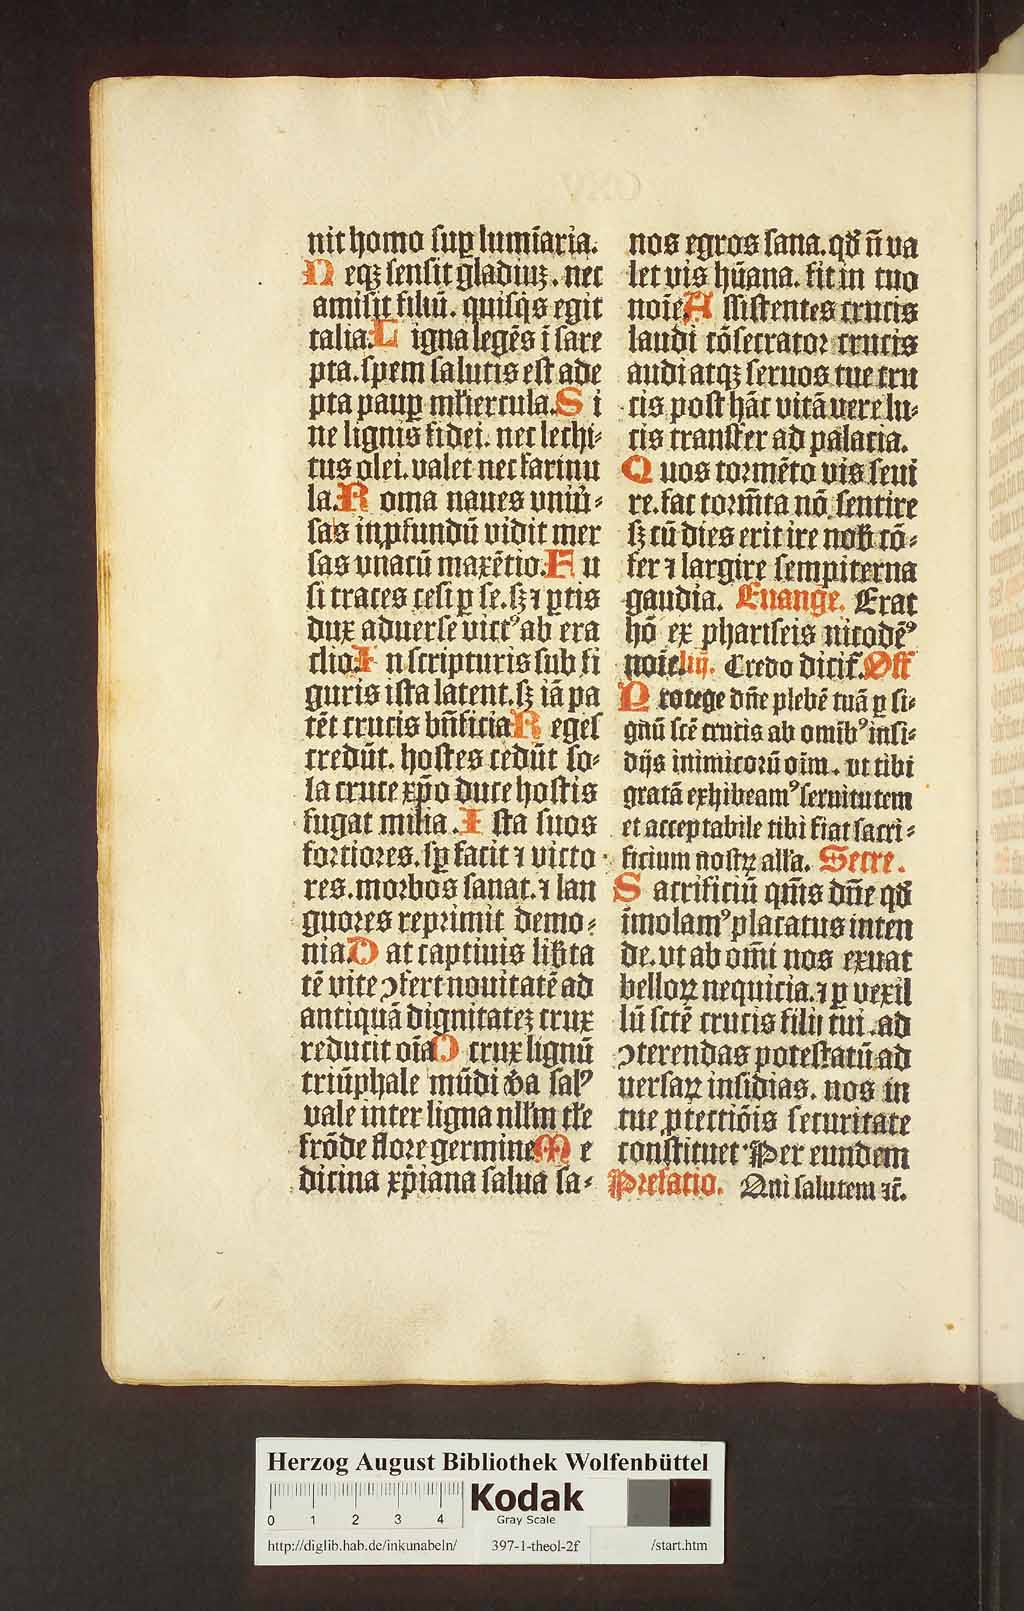 nit homo suꝑ lumīaria.
Neqꝫ sensit gladiuꝫ. nec
amisit filiū. quisq̄s egit
talia. Ligna legēs ī sare
pta. spem salutis est ade
pta pauꝑ ml̄iercula. Si
ne lignis fidei. nec lechi⸗
tus olei. valet nec farinu
la. Roma naues vniū⸗
sas in ꝓfundū vidit mer
sas vnacū maxētio. Fu
si traces cesi ꝑ se. sꝫ ⁊ ꝑtis
dux aduerse victꝰ ab era
clio. In scripturis sub fi
guris ista latent. sꝫ iā pa
tēt crucis bn̄ficia Reges
credūt. hostes cedūt so⸗
la cruce xp̄o duce hostis
fugat milia. Ista suos
fortiores. sꝑ facit ⁊ victo
res. morbos sanat. ⁊ lan
guores reprimit demo⸗
nia. Dat captiuis lib̄ta
tē vite ꝯfert nouitatē ad
antiquā dignitateꝫ crux
reducit oīa O crux lignū
triūphale mūdi v̄a salꝰ
vale inter ligna nll̄m tl̄e
frōde flore germine Me
dicina xp̄iana salua sa⸗
nos egros sana. qd̄ n̄ va
let vis hūana. fit in tuo
noīe. Assistentes crucis
laudi cōsecrator crucis
audi atqꝫ seruos tue cru
cis post hāc vitā vere lu⸗
cis transfer ad palacia.
Quos tormēto vis serui
re. fac torm̄ta nō sentire
sꝫ cū dies erit ire nob̄ cō⸗
fer ⁊ largire sempiterna
gaudia. Euange. Erat
hō ex phariseis nicodēꝰ
noīe. liij. Credo dicit̄. Off
Protege dn̄e plebē tuā ꝑ si⸗
gnū scē crucis ab omībꝰ insi⸗
dijs inimicorū oīm. vt tibi
gratā exhibeamꝰ seruitutem
et acceptabile tibi fiat sacri⸗
ficium nostꝝ all̄a. Secre.
Sacrificiū qm̄s dn̄e qd̄
īmolamꝰ placatus inten
de. vt ab om̄i nos exuat
belloꝝ nequicia. ⁊ ꝑ vexil
lū sctē crucis filij tui. ad
ꝯterendas potestatū ad
uersaꝝ insidias. nos in
tue ꝓtectiōis securitate
constituet Per eundem
Prefatio. Qui salutem ⁊c̄.
Herzog August Bibliothek Wolfenbüttel
0 1 2 3 4
Kodak
Gray Scale
http://diglib.hab.de/inkunabeln/ 397-1-theol-2f /start.htm